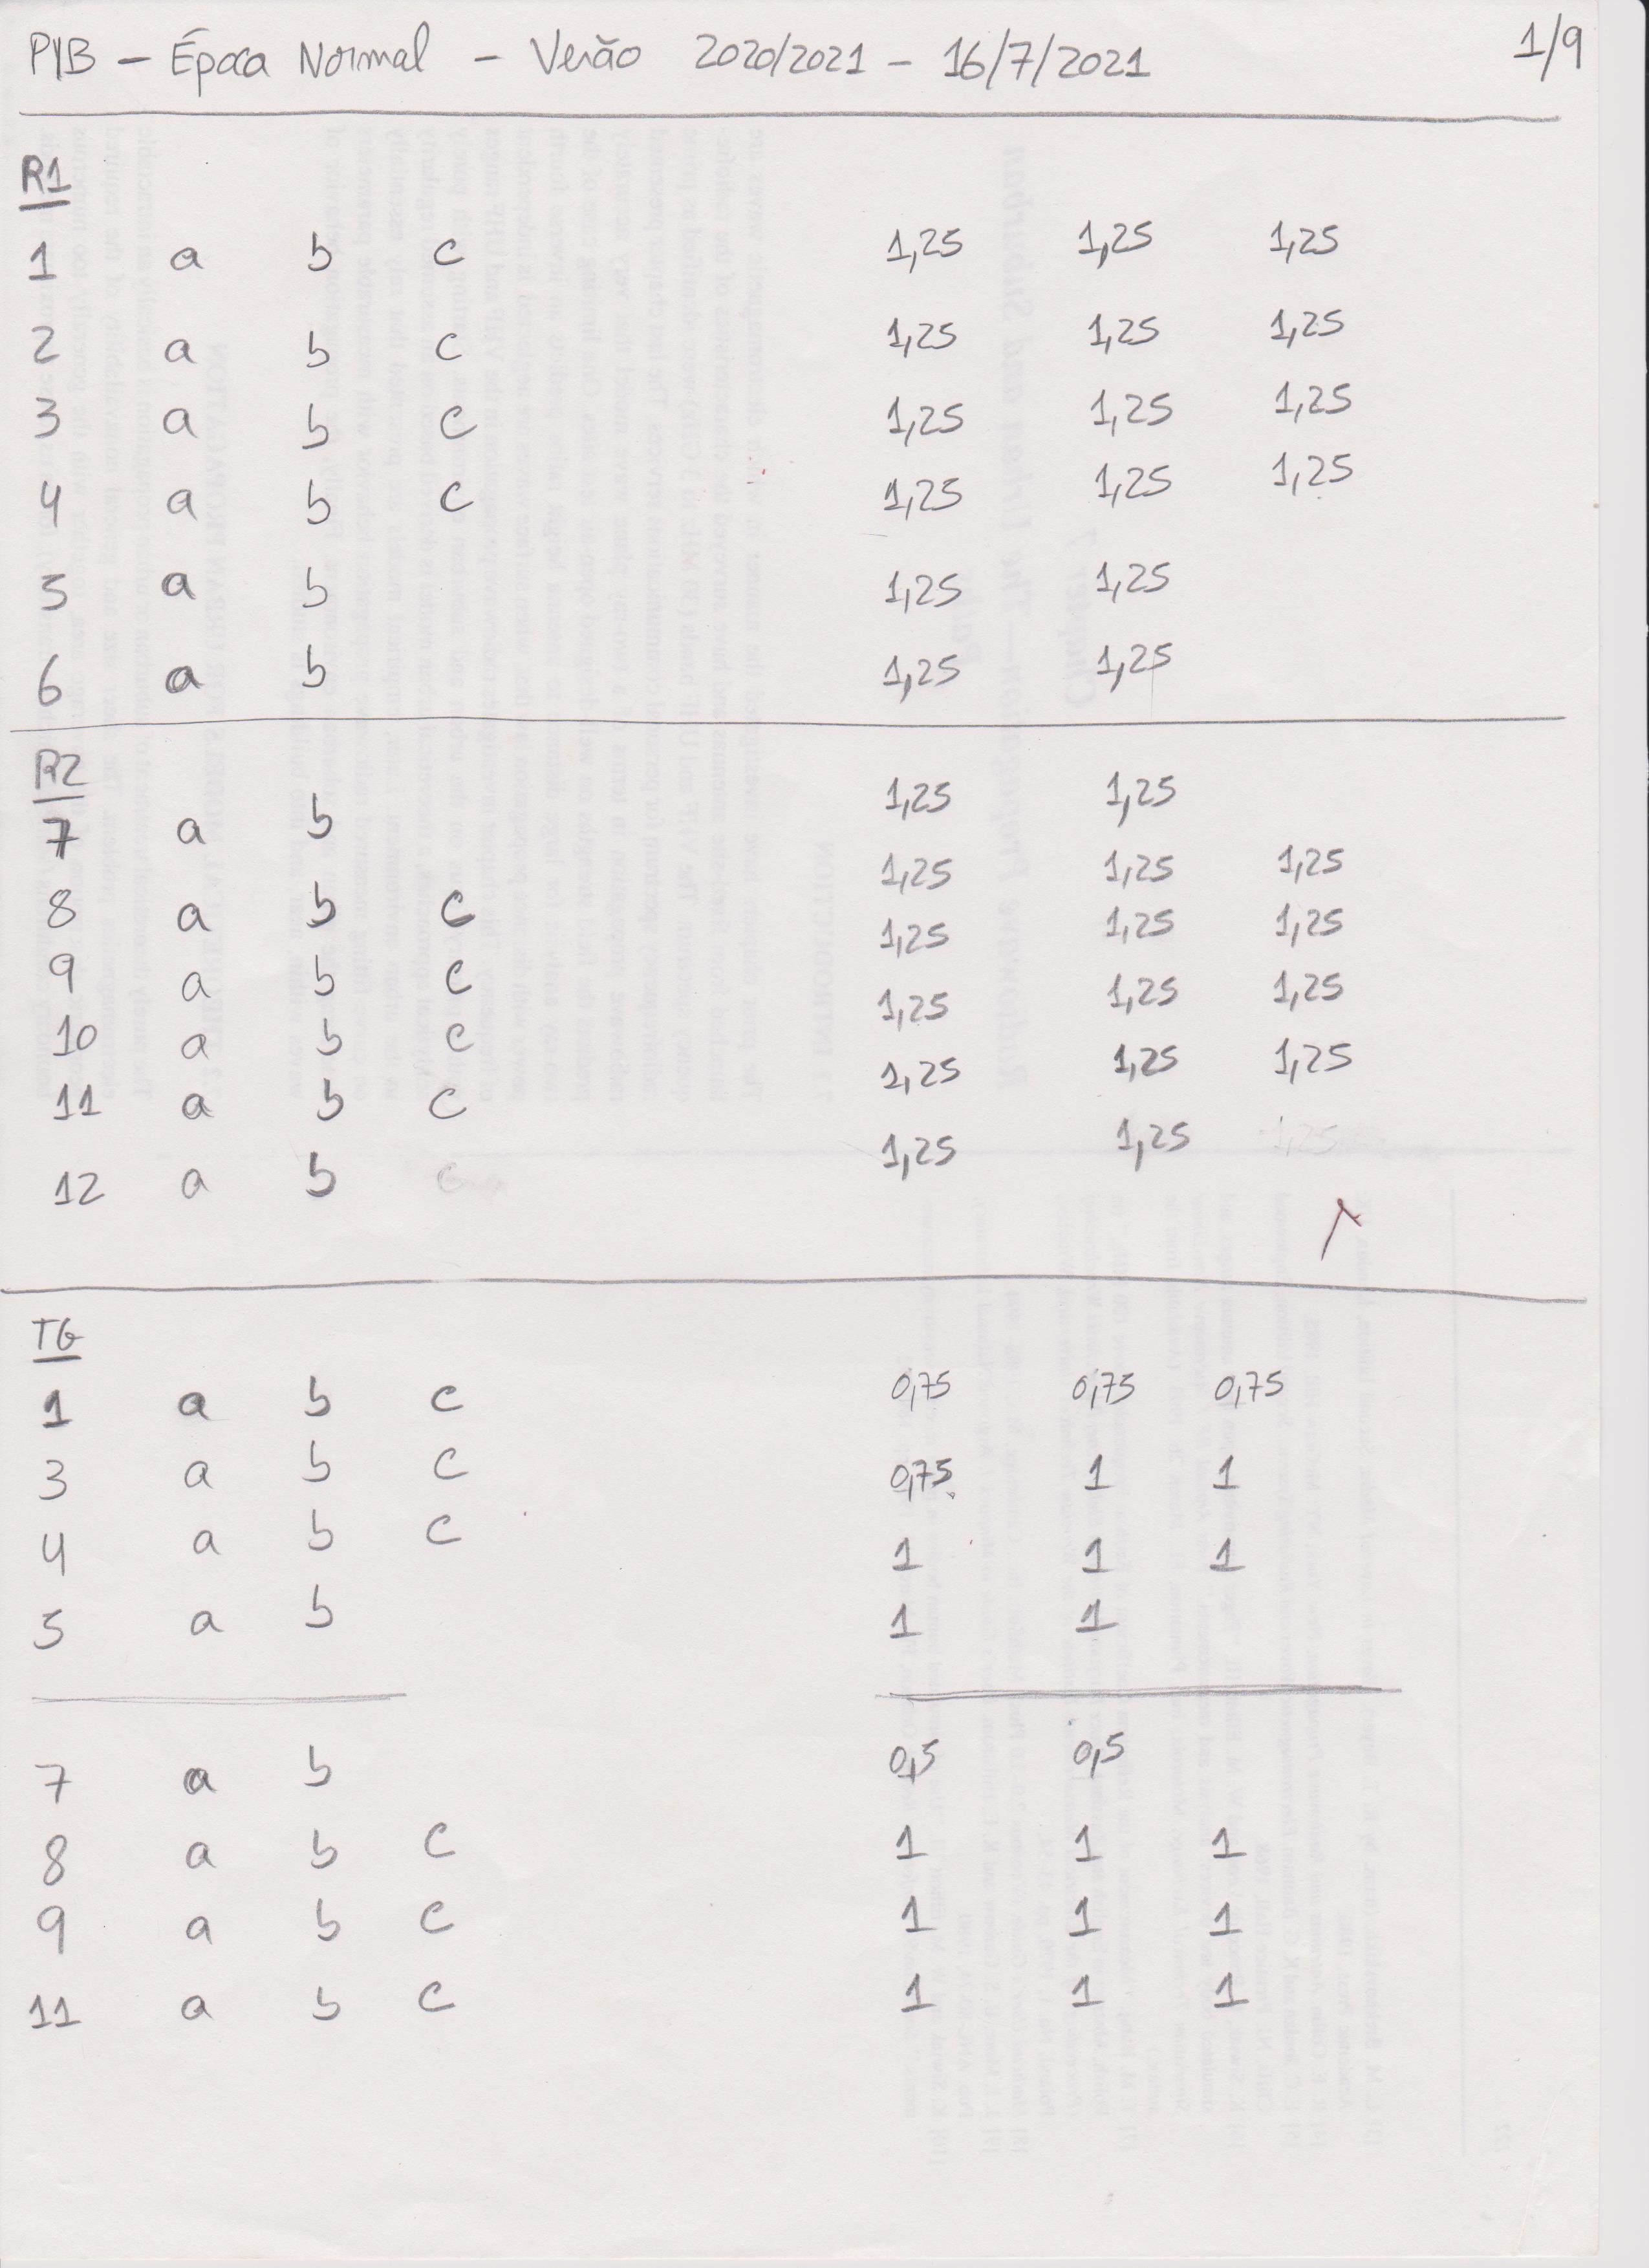 PIB - Época Normal - Verão 2020/2021 - 16/7/2021 1/9
R1
1 a b c 1,25 1,25 1,25
2 a b c 1,25 1,25 1,25
3 a b c 1,25 1,25 1,25
4 a b c 1,25 1,25 1,25
5 a b 1,25 1,25
6 a b 1,25 1,25
R2
7 a b 1,25 1,25
8 a b c 1,25 1,25 1,25
9 a b c 1,25 1,25 1,25
10 a b c 1,25 1,25 1,25
11 a b c 1,25 1,25 1,25
12 a b 1,25 1,25
TG
1 a b c 0,75 0,75 0,75
3 a b c 0,75 1 1
4 a b c 1 1 1
5 a b 1 1
7 a b 0,5 0,5
8 a b c 1 1 1
9 a b c 1 1 1
11 a b c 1 1 1